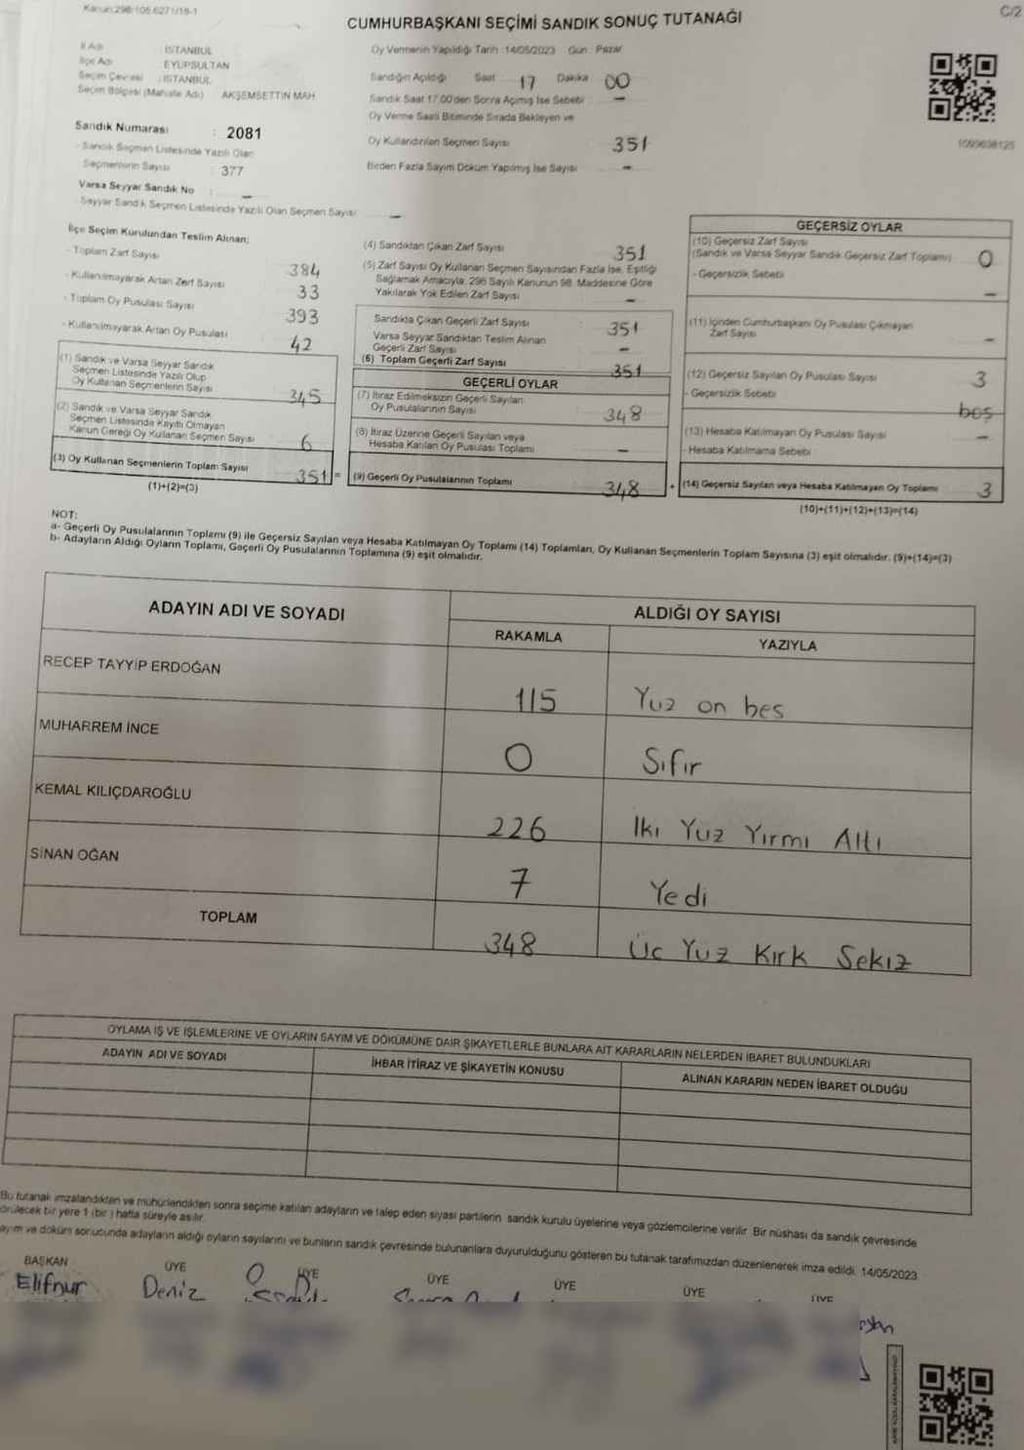 Kanun:298/105.6271/18-1
C/2
CUMHURBAŞKANI SEÇİMİ SANDIK SONUÇ TUTANAĞI
İl Adı : İSTANBUL
İlçe Adı : EYÜPSULTAN
Seçim Çevresi : İSTANBUL
Seçim Bölgesi (Mahalle Adı) AKŞEMSETTİN MAH.
Sandık Numarası : 2081
- Sandık Seçmen Listesinde Yazılı Olan
Seçmenlerin Sayısı : 377
Varsa Seyyar Sandık No : -
- Seyyar Sandık Seçmen Listesinde Yazılı Olan Seçmen Sayısı -
Oy Vermenin Yapıldığı Tarih :14/05/2023 Gün : Pazar
Sandığın Açıldığı Saat 17 Dakika 00
Sandık Saat 17.00'den Sonra Açılmış İse Sebebi -
Oy Verme Saati Bitiminde Sırada Bekleyen ve
Oy Kullandırılan Seçmen Sayısı 351
Birden Fazla Sayım Döküm Yapılmış İse Sayısı -
1099638125
İlçe Seçim Kurulundan Teslim Alınan;
- Toplam Zarf Sayısı 384
- Kullanılmayarak Artan Zarf Sayısı 33
- Toplam Oy Pusulası Sayısı 393
- Kullanılmayarak Artan Oy Pusulası 42
(1) Sandık ve Varsa Seyyar Sandık
Seçmen Listesinde Yazılı Olup
Oy Kullanan Seçmenlerin Sayısı 345
(2) Sandık ve Varsa Seyyar Sandık
Seçmen Listesinde Kayıtlı Olmayan
Kanun Gereği Oy Kullanan Seçmen Sayısı 6
(3) Oy Kullanan Seçmenlerin Toplam Sayısı 351 =
(1)+(2)=(3)
(4) Sandıktan Çıkan Zarf Sayısı 351
(5) Zarf Sayısı Oy Kullanan Seçmen Sayısından Fazla İse, Eşitliği
Sağlamak Amacıyla, 298 Sayılı Kanunun 98. Maddesine Göre
Yakılarak Yok Edilen Zarf Sayısı -
Sandıkta Çıkan Geçerli Zarf Sayısı 351
Varsa Seyyar Sandıktan Teslim Alınan
Geçerli Zarf Sayısı -
(6) Toplam Geçerli Zarf Sayısı 351
GEÇERLİ OYLAR
(7) İtiraz Edilmeksizin Geçerli Sayılan
Oy Pusulalarının Sayısı 348
(8) İtiraz Üzerine Geçerli Sayılan veya
Hesaba Katılan Oy Pusulası Toplamı -
(9) Geçerli Oy Pusulalarının Toplamı 348 +
GEÇERSİZ OYLAR
(10) Geçersiz Zarf Sayısı
(Sandık ve Varsa Seyyar Sandık Geçersiz Zarf Toplamı) 0
- Geçersizlik Sebebi -
(11) İçinden Cumhurbaşkanı Oy Pusulası Çıkmayan
Zarf Sayısı -
(12) Geçersiz Sayılan Oy Pusulası Sayısı 3
- Geçersizlik Sebebi boş
(13) Hesaba Katılmayan Oy Pusulası Sayısı -
- Hesaba Katılmama Sebebi
(14) Geçersiz Sayılan veya Hesaba Katılmayan Oy Toplamı 3
(10)+(11)+(12)+(13)=(14)
NOT:
a- Geçerli Oy Pusulalarının Toplamı (9) ile Geçersiz Sayılan veya Hesaba Katılmayan Oy Toplamı (14) Toplamları, Oy Kullanan Seçmenlerin Toplam Sayısına (3) eşit olmalıdır. (9)+(14)=(3)
b- Adayların Aldığı Oyların Toplamı, Geçerli Oy Pusulalarının Toplamına (9) eşit olmalıdır.
ADAYIN ADI VE SOYADI
ALDIĞI OY SAYISI
RAKAMLA YAZIYLA
RECEP TAYYİP ERDOĞAN 115 Yuz on bes
MUHARREM İNCE 0 Sıfır
KEMAL KILIÇDAROĞLU 226 Iki Yuz Yırmı Altı
SİNAN OĞAN 7 Yedi
TOPLAM 348 Üc Yuz Kırk Sekız
OYLAMA İŞ VE İŞLEMLERİNE VE OYLARIN SAYIM VE DÖKÜMÜNE DAİR ŞİKAYETLERLE BUNLARA AİT KARARLARIN NELERDEN İBARET BULUNDUKLARI
ADAYIN ADI VE SOYADI İHBAR İTİRAZ VE ŞİKAYETİN KONUSU ALINAN KARARIN NEDEN İBARET OLDUĞU
Bu tutanak imzalandıktan ve mühürlendikten sonra seçime katılan adayların ve talep eden siyasi partilerin sandık kurulu üyelerine veya gözlemcilerine verilir. Bir nüshası da sandık çevresinde
görülecek bir yere 1 (bir ) hafta süreyle asılır.
ayım ve döküm sonucunda adayların aldığı oyların sayılarını ve bunların sandık çevresinde bulunanlara duyurulduğunu gösteren bu tutanak tarafımızdan düzenlenerek imza edildi. 14/05/2023
BAŞKAN ÜYE ÜYE ÜYE ÜYE ÜYE ÜYE
Elifnur Deniz